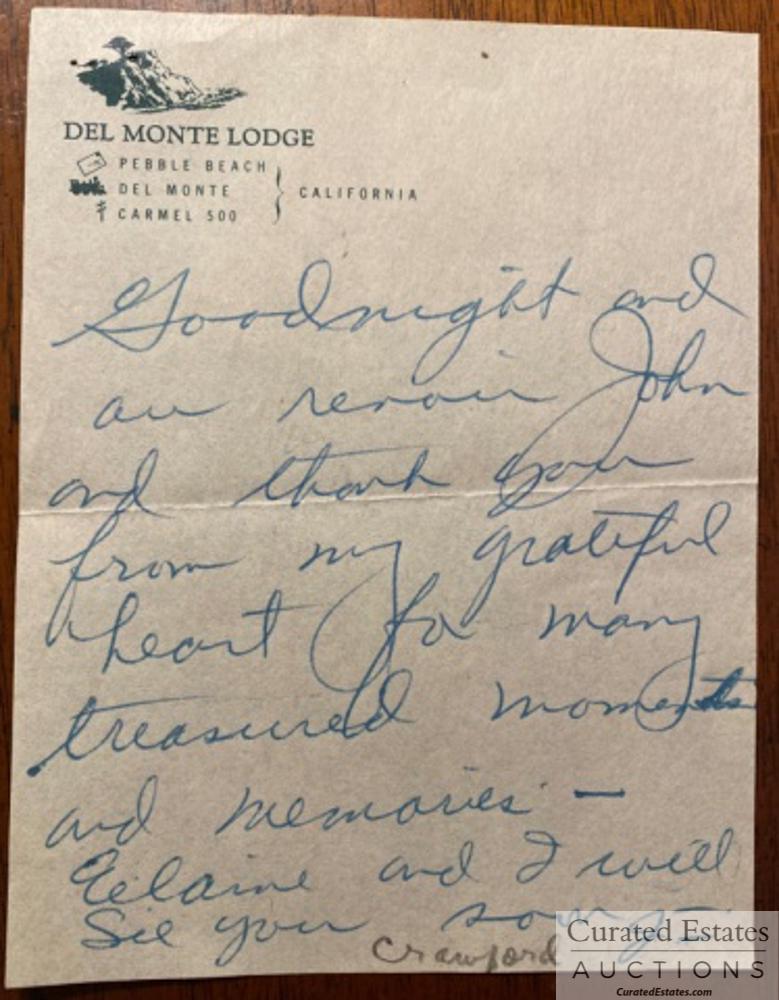 DEL MONTE LODGE
PEBBLE BEACH
DEL MONTE } CALIFORNIA
CARMEL 500
Goodnight and
au revoir John
and thank you
from my grateful
heart for many
treasured moments
and memories —
Eilaine and I will
See you
Crawford
Curated Estates
AUCTIONS
CuratedEstates.com